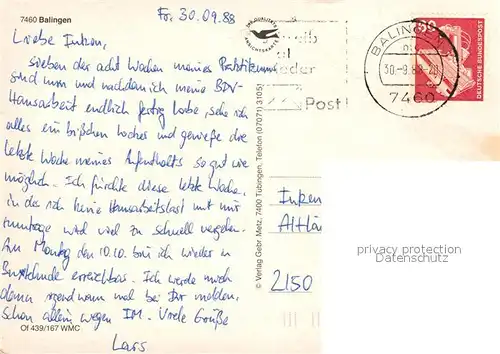 7460 Balingen
Fr, 30.09.88
Liebe Inken,
sieben der acht Wochen meines
sind rum und nachdem ich meine BDV-
Hausarbeit endlich fertig habe, sehe ich
alles ein bißchen locker und genieße die
letzte Woche meines Aufenthalts so gut wie
möglich. Ich fürchte diese letzte Woche,
in der ich keine Hausarbeitslast mit mir
rumtrage wird viel zu schnell vergehen.
Am Montag den 10.10. bin ich wieder in
Buxtehude erreichbar. Ich werde mich
dann irgendwann mal bei Dir melden,
schon allein wegen IM. Viele Grüße
Lars
Of 439/167 WMC
© Verlag Gebr. Metz, 7400 Tübingen, Telefon (07071) 3105
Post
BALINGEN
30.-9.88-20
7460
50
DEUTSCHE BUNDESPOST
Inken
Altlä
2150
privacy protection
Datenschutz